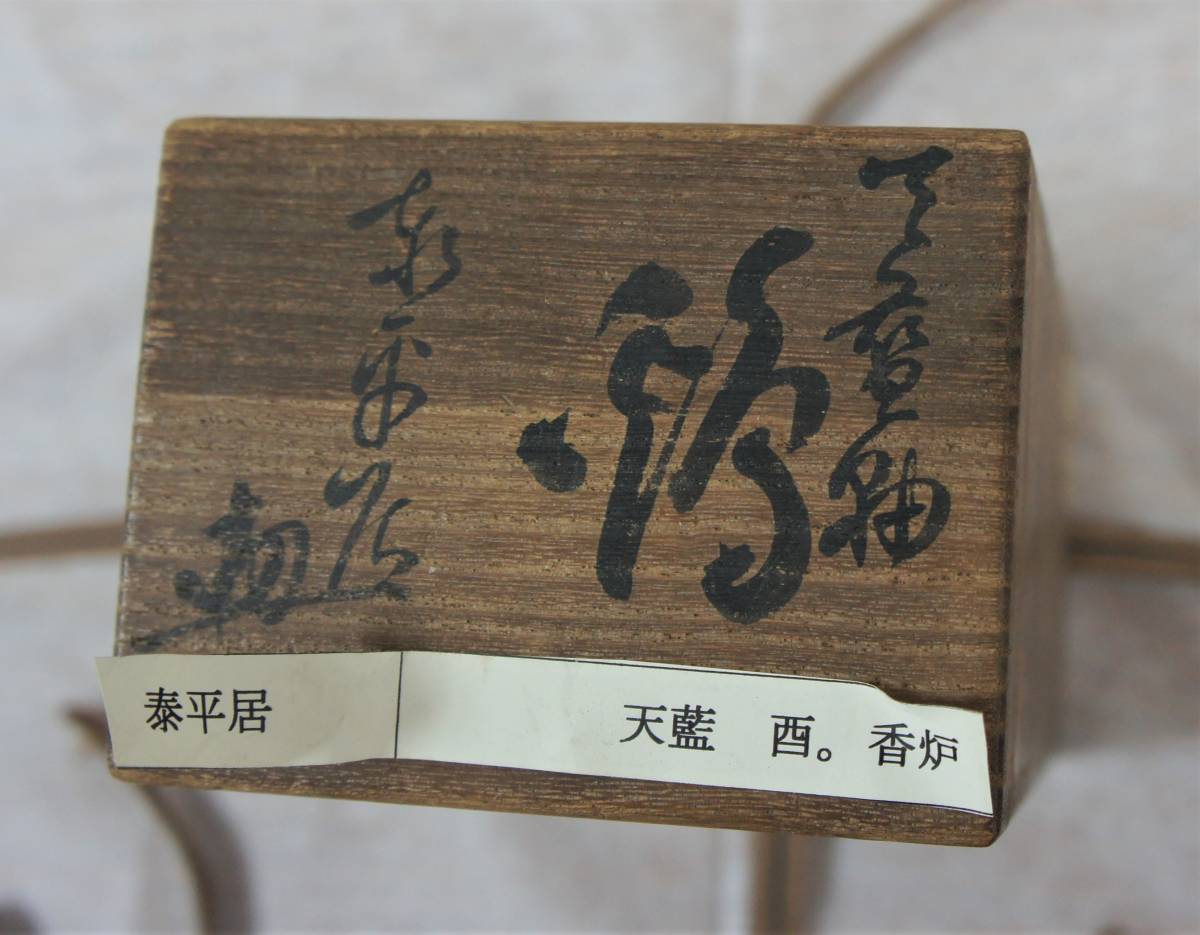 天藍釉
泰平居
泰平居
天藍 酉。香炉